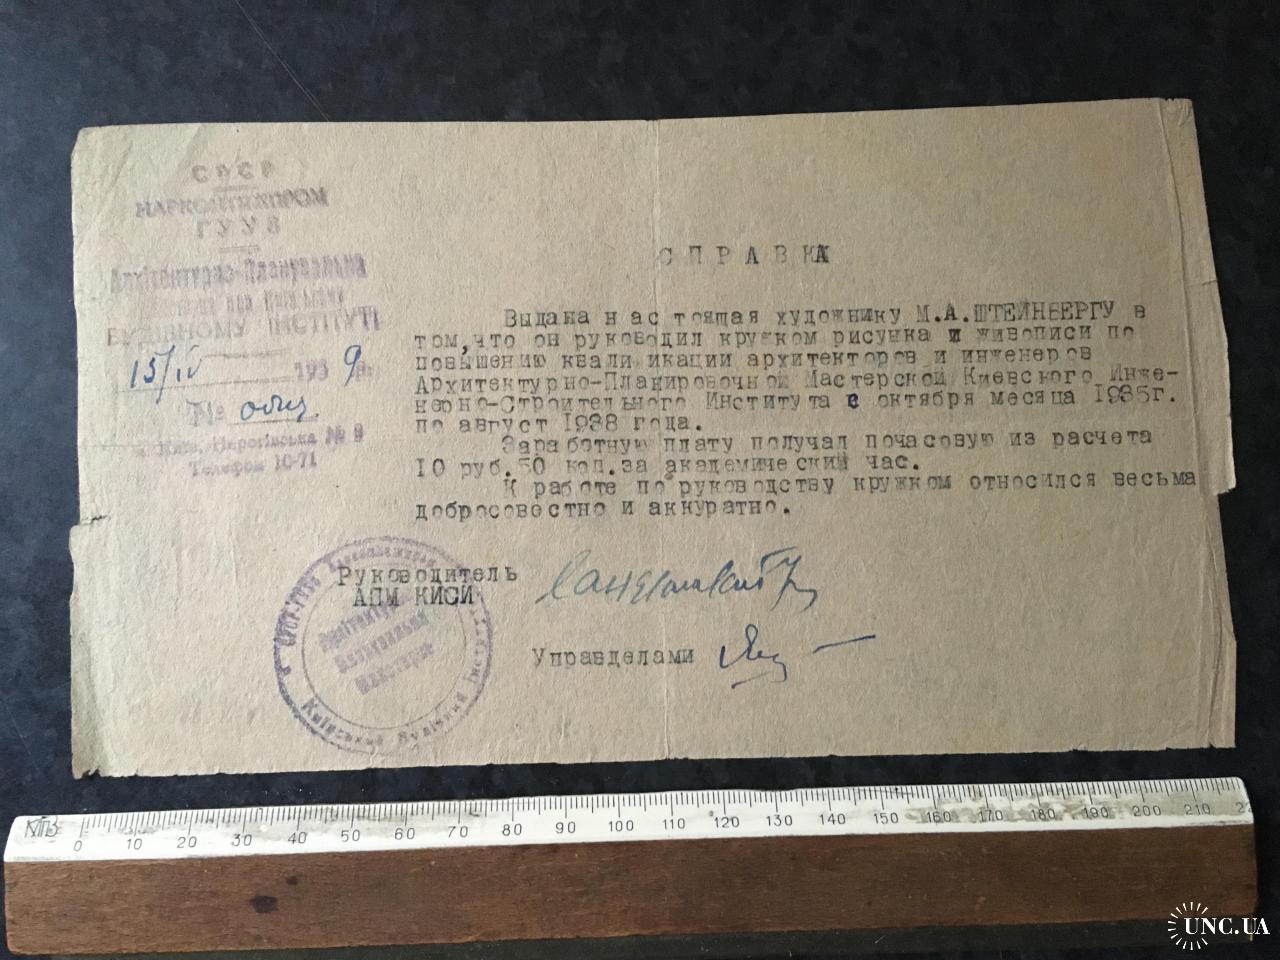 СРСР
НАРКОМТЯЖПРОМ
ГУУЗ
Архітектурно-Планувальна
при
БУДІВНОМУ ІНСТИТУТІ
15/IV 1939 р.
№
№ 9
Телефон 10-71
СПРАВКА
Выдана настоящая художнику М.А.ШТЕЙНБЕРГУ в
том, что он руководил кружком рисунка и живописи по
повышению квали икации архитекторов и инженеров
Архитектурно-Планировочной Мастерской Киевского Инже-
нерно-Строительного Института с октября месяца 1935г.
по август 1938 года.
Заработную плату получал почасовую из расчета
10 руб.50 коп.за академический час.
К работе по руководству кружком относился весьма
добросовестно и аккуратно.
Руководитель
АПМ КИСИ
Управделами
Архітектурно
Планувальна
Майстерня
Київський Будівний Інститут
КПЗ
0 10 20 30 40 50 60 70 80 90 100 110 120 130 140 150 160 170 180 190 200 210 22
UNC.UA